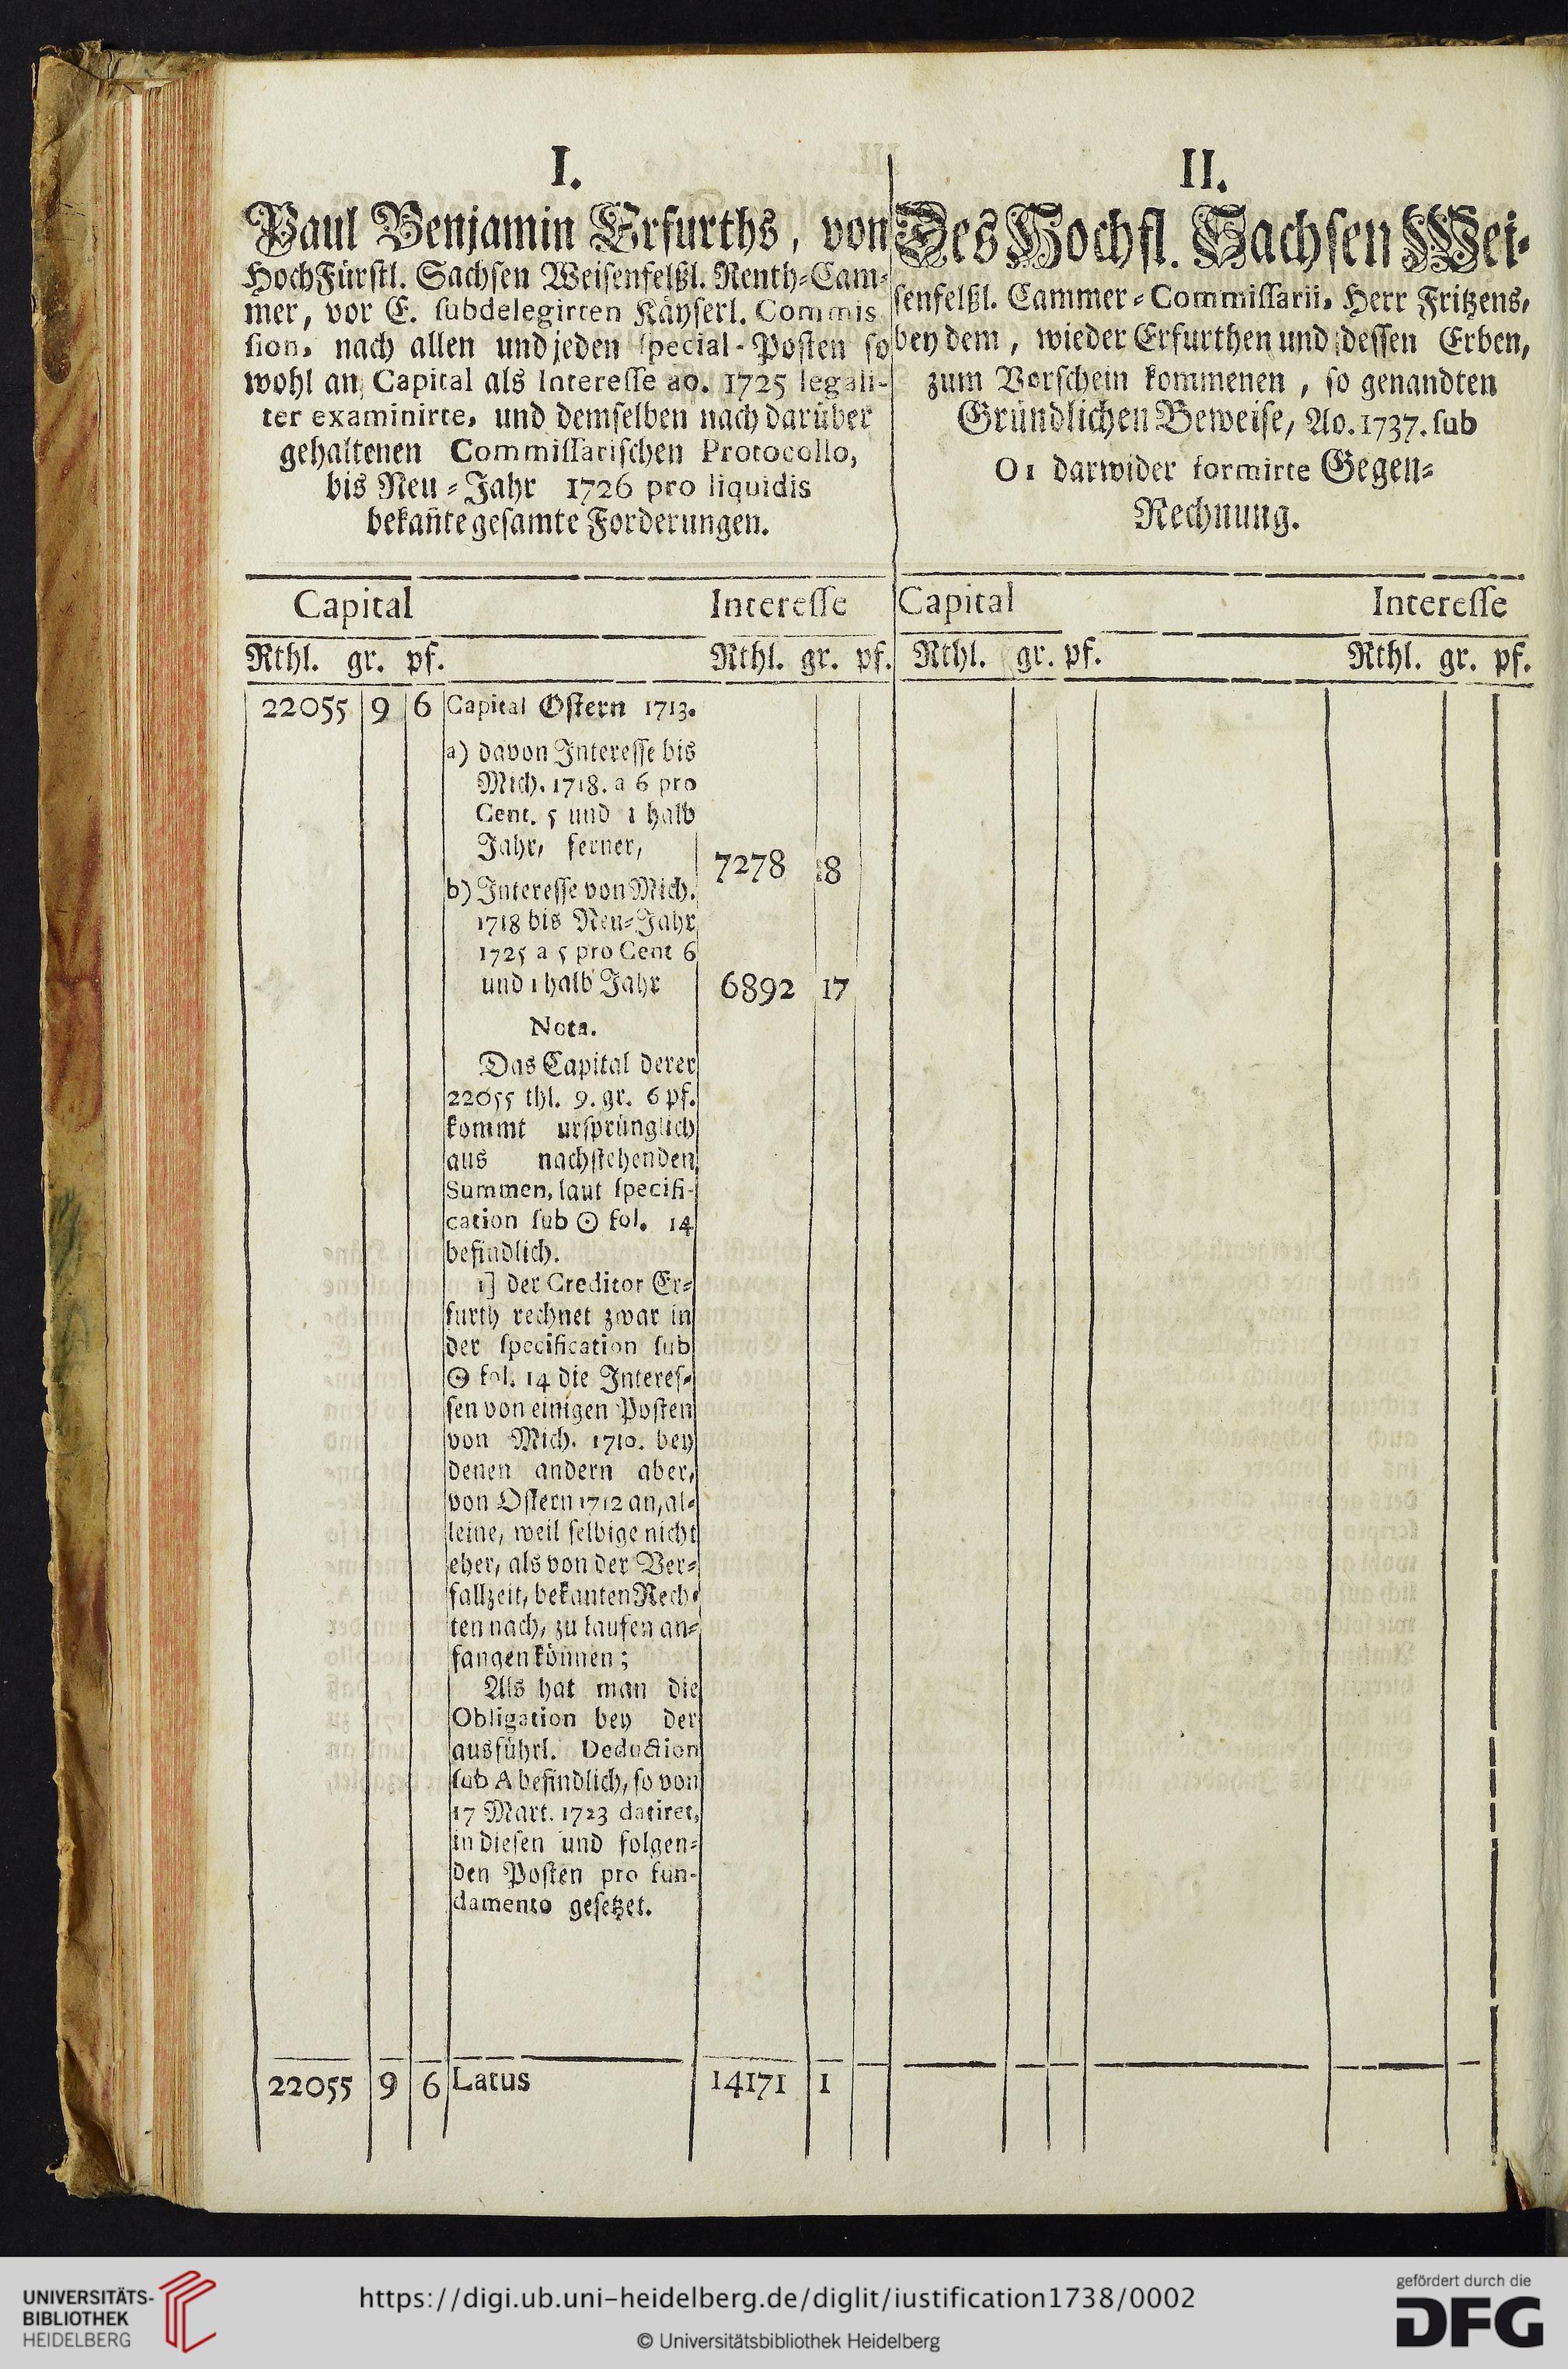 I.
Paul Benjamin Erfurths, von
HochFürstl. Sachsen Weisenfelßl. Renth-Cam-
mer, vor E. subdelegirten Käyserl. Commis
sion, nach allen und jeden special-Posten so
wohl an Capital als Interesse ao. 1725 legali-
ter examinirte, und demselben nach darüber
gehaltenen Commissarischen Protocollo,
bis Neu-Jahr 1726 pro liquidis
bekañte gesamte Forderungen.
II.
Des Hochfl. Sachsen Wei-
senfelßl. Cammer-Commissarii, Herr Fritzens,
bey dem, wieder Erfurthen und dessen Erben,
zum Vorschein kommenen, so genandten
Gründlichen Beweise, Ao. 1737. sub
O1 darwider formirte Gegen-
Rechnung.
Capital Interesse Capital Interesse
Rthl. gr. pf. Rthl. gr. pf. Rthl. gr. pf. Rthl. gr. pf.
22055 9 6 Capital Ostern 1713.
a) davon Interesse bis
Mich. 1718. a 6 pro
Cent. 5 und 1 halb
Jahr, ferner,
7278 8
b) Interesse von Mich.
1718 bis Neu-Jahr
1725 a 5 pro Cent 6
und 1 halb Jahr 6892 17
Nota.
Das Capital derer
22055 thl. 9. gr. 6 pf.
kommt ursprünglich
aus nachstehenden
Summen, laut specifi-
cation sub ☉ fol. 14
befindlich.
1] der Creditor Er-
furth rechnet zwar in
der specification sub
☉ fol. 14 die Interes-
sen von einigen Posten
von Mich. 1710. bey
denen andern aber,
von Ostern 1712 an, al-
leine, weil selbige nicht
eher, als von der Ver-
fallzeit, bekanten Rech-
ten nach, zu laufen an-
fangen können;
Als hat man die
Obligation bey der
ausführl. Deduction
sub A befindlich, so von
17 Mart. 1723 datiret,
in diesen und folgen-
den Posten pro fun-
damento gesetzet.
22055 9 6 Latus 14171 1
UNIVERSITÄTS-
BIBLIOTHEK
HEIDELBERG
https://digi.ub.uni-heidelberg.de/diglit/iustification1738/0002
© Universitätsbibliothek Heidelberg
gefördert durch die
DFG